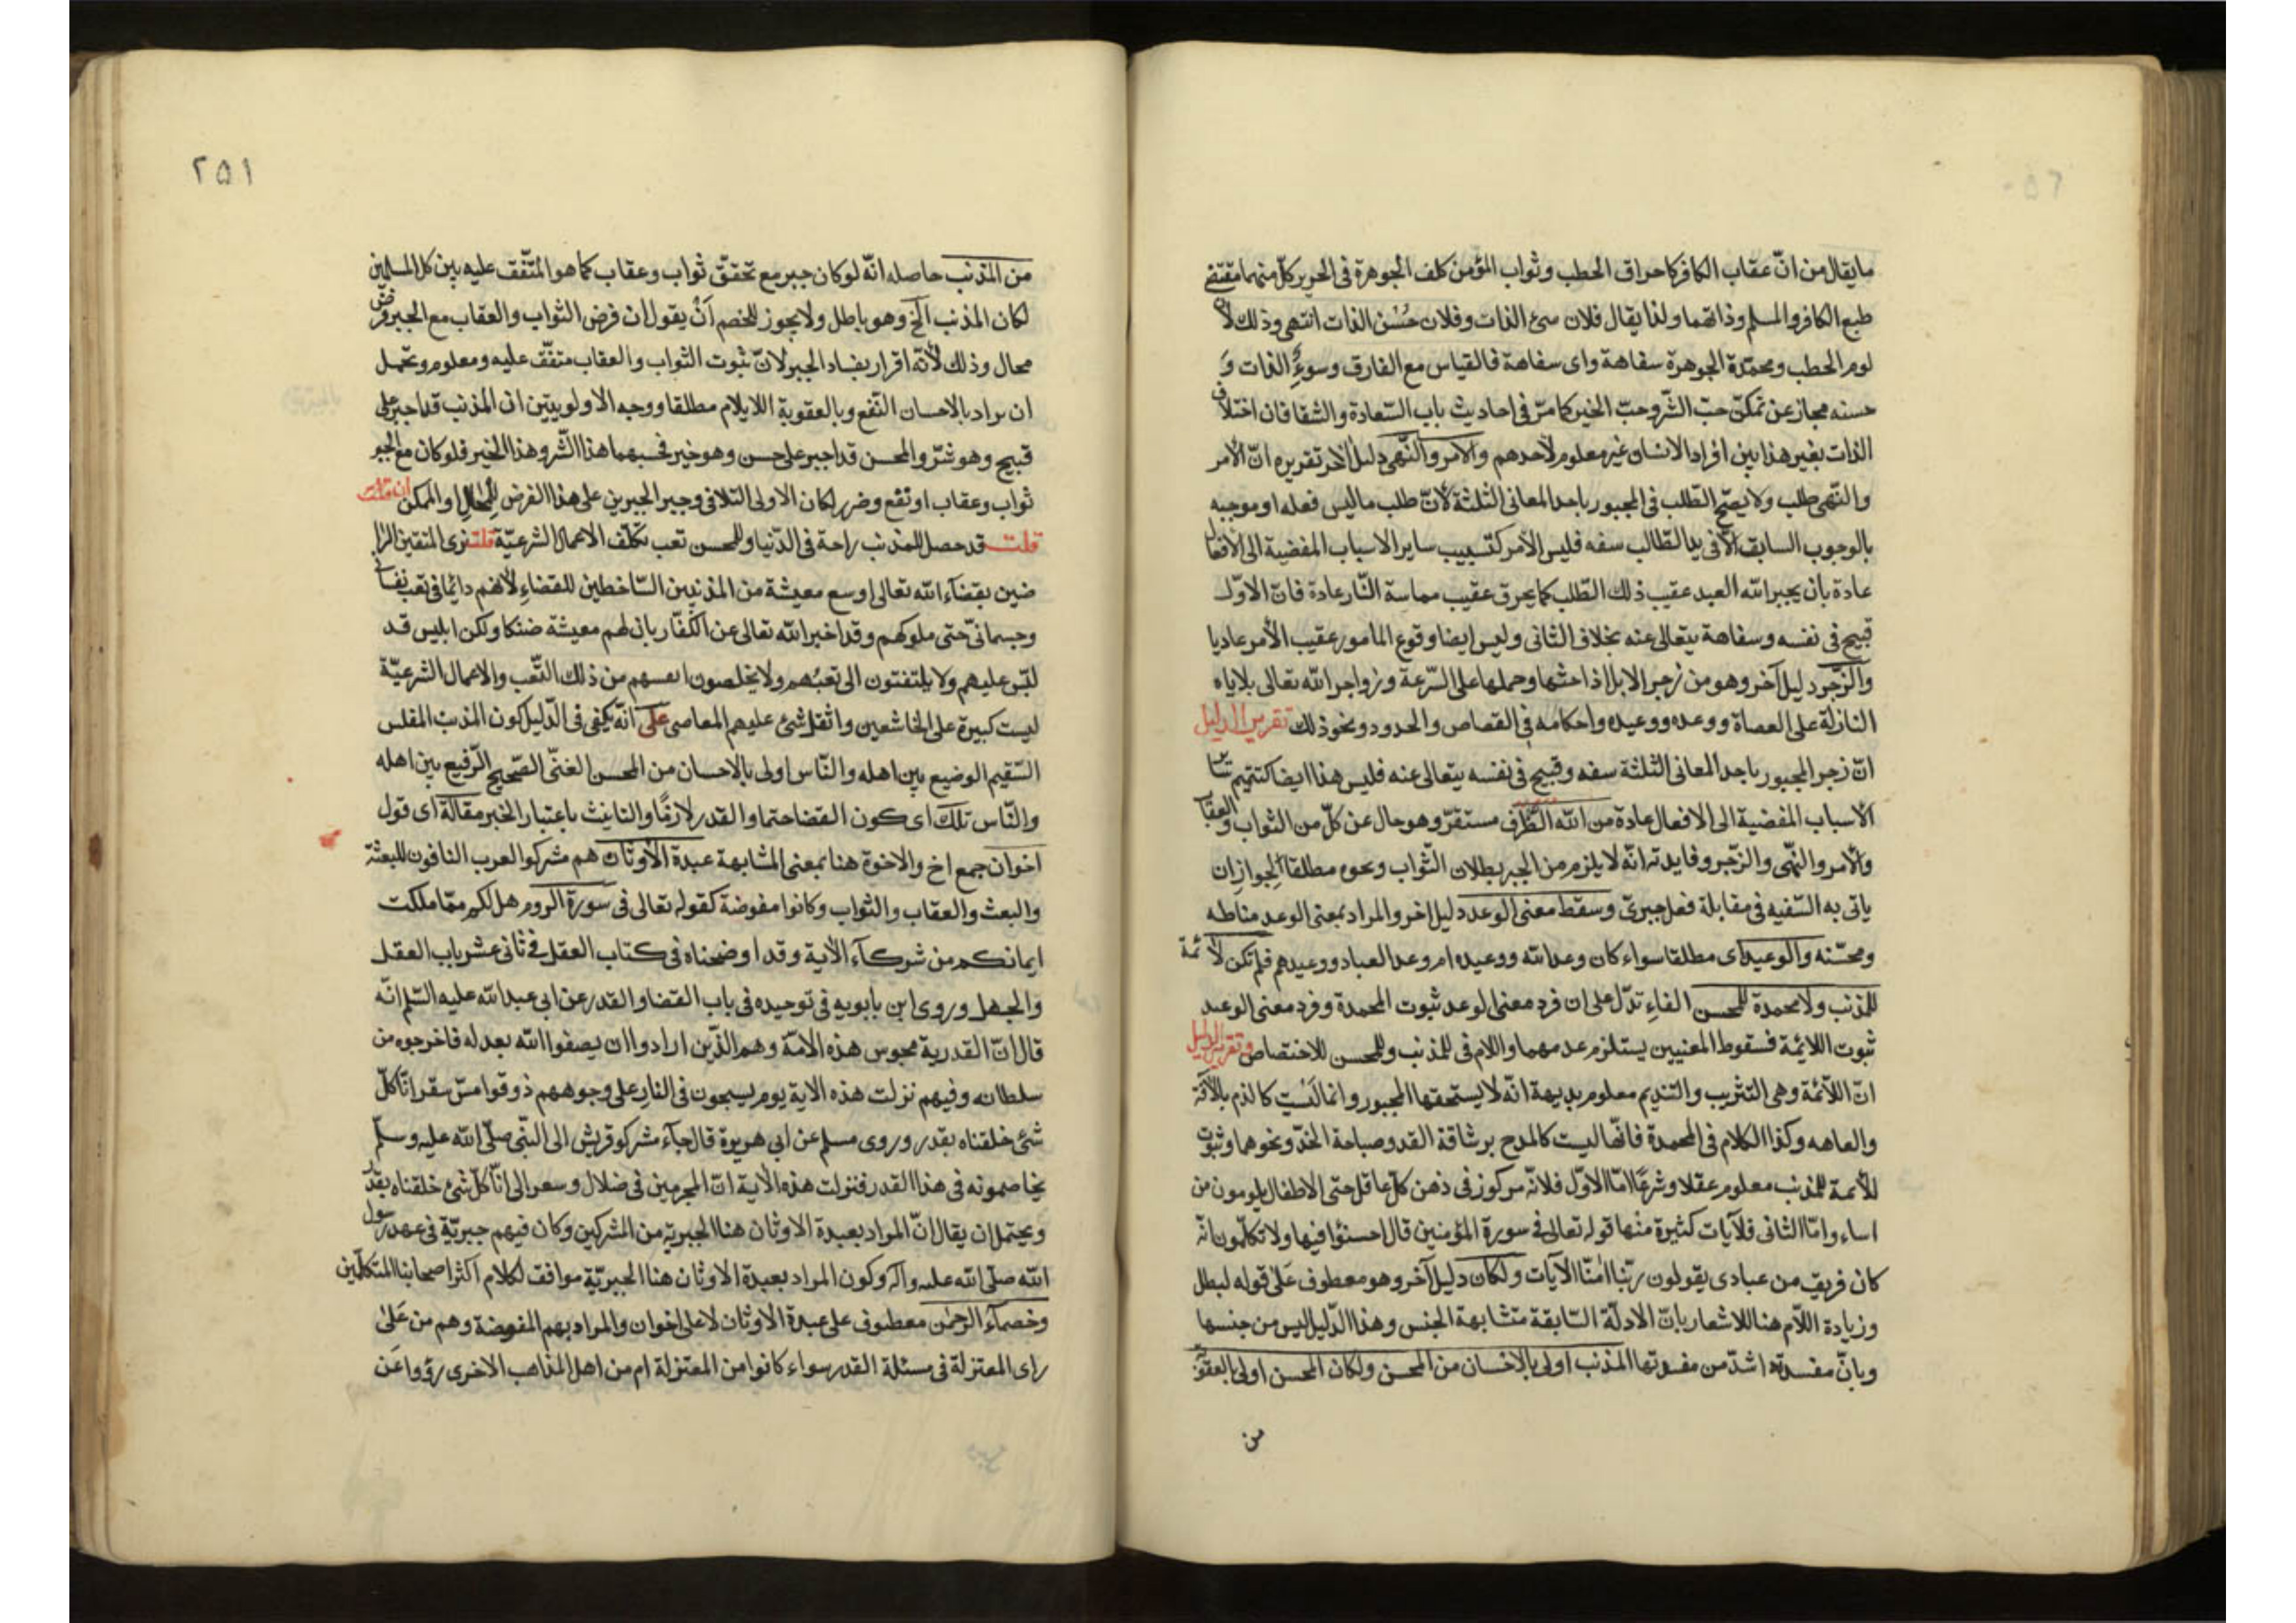 ما يقال من انّ عقاب الكافر كاحراق الحطب وثواب المؤمن كلف الجوهرة فى الحرير كلّ منهما مقتضى
طبع الكافر والمسلم وذاتهما ولذا يقال فلان سئ الذات وفلان حُسْن الذات انتهى وذلك لانّ
لوم الحطب ومحمدة الجوهرة سفاهة واى سفاهة فالقياس مع الفارق وسوءِ الذات وَ
حسنه مجاز عن تمكّن حبّ الشّر وحبّ الخير كما مرّ فى احاديث باب السّعادة والشقا فان اختلاف
الذات بغير هذا بين افراد الانسان غير معلوم لاحدهم والامر والنّهى دليل آخر تقريره انّ الامر
والنّهى طلب ولا يصحّ الطّلب فى المجبور باحد المعانى الثلثة لانّ طلب ما ليس فعله او موجبه
بالوجوب السابق الّا فى يد الطّالب سفه فليس الامر كتسبيب ساير الاسباب المفضية الى الافعال
عادة بان يجبر الله العبد عقيب ذلك الطّلب كما يحرق عقيب مماسة النّار عادة فانّ الاوّل
قبيح فى نفسه وسفاهة يتعالى عنه بخلاف الثانى وليس ايضا وقوع المامور عقيب الأمر عاديا
والزّجر دليل آخر وهو من زجر الابل اذا حثها وحملها على السّرعة وزواجر الله تعالى بلاياه
النازلة على العصاة ووعده ووعيده واحكامه فى القصاص والحدود ونحو ذلك تقرير الدليل
انّ زجر المجبور باحد المعانى الثلثة سفه وقبيح فى نفسه يتعالى عنه فليس هذا ايضا كتتميم سائر
الاسباب المفضية الى الافعال عادة من الله الظّرف مستقرّ وهو حال عن كلّ من الثواب والعقاب
والأمر والنّهى والزّجر وفايدته انّه لا يلزم من الجبر بطلان الثّواب ونحوه مطلقا لجواز ان
ياتى به السّفيه فى مقابلة فعل جبرىّ وسقط معنى الوعد دليل اخر والمراد بمعنى الوعد مناطه
ومحسّنه والوعيد اى مطلقا سواء كان وعد الله ووعيده ام وعد العباد ووعيدهم فلم تكن لائمة
للمذنب ولا محمدة للمحسن الفاءِ تدّل على ان فرد معنى الوعد ثبوت المحمدة وفرد معنى الوعيد
ثبوت اللائمة فسقوط المعنيين يستلزم عدمهما واللام فى للمذنب وللمحسن للاختصاص وتقرير الدليل
انّ اللّائمة وهى التثريب والتنديم معلوم بديهة انّه لا يستحقها المجبور وانما ليست كالذم بالآفة
والعاهه وكذا الكلام فى المحمدة فانّها ليست كالمدح برشاقة القد وصباحة الخدّ ونحوهما وثبوت
للأئمة للمذنب معلوم عقلا وشرعًا امّا الاوّل فلانّه مركوز فى ذهن كلّ عاقل حتى الاطفال يلومون من
اساء وامّا الثانى فلآيات كثيرة منها قوله تعالى فى سورة المؤمنين قال اخسئوا فيها ولا تكلّمون انّه
كان فريق من عبادى يقولون ربّنا امنّا الآيات ولكان دليل آخر وهو معطوف عَلىٰ قوله لبطل
وزيادة اللّام هنا للاشعار بانّ الادلّة السّابقة متشابهة الجنس وهذا الدّليل ليس من جنسها
وبانّ مفسدته اشدّ من مفسدتها المذنب اولى بالاحسان من المحسن ولكان المحسن اولى بالعقوبة
من
٢٥١
من المذنب حاصله انّه لو كان جبر مع تحققّ ثواب وعقاب كما هو المتّفق عليه بين كل المسلمين
لكان المذنب الخ وهو باطل ولا يجوز للخصم اَنْ يقول ان فرض الثواب والعقاب مع الجبر فرض
محال وذلك لأنّه اقرار بفساد الجبر لانّ ثبوت الثواب والعقاب متفّق عليه ومعلوم ويحتمل
ان يراد بالاحسان النّفع وبالعقوبة اللايلام مطلقا ووجه الاولويتين ان المذنب قد اجبر على
قبيح وهو شرّ والمحسن قد اجبر على حسن وهو خير فحسبهما هذا الشّر وهذا الخير فلو كان مع الجبر
ثواب وعقاب او نفع وضرر لكان الاولى التلافى وجبر الجبرين على هذا الفرض المحال او الممكن ان قلت
قلت قد حصل للمذنب راحة فى الدّنيا وللمحسن تعب تكلّف الاعمال الشرعيّة قلت نرى المتقين الرا
ضين بقضآء الله تعالى اوسع معيشة من المذنبين السّاخطين للقضاءِ لأنّهم دائما فى تعب نفسانى
وجسمانىّ حتى ملوكهم وقد اخبر الله تعالى عن الكفّار بان لهم معيشة ضنكا ولكن ابليس قد
لبّس عليهم ولا يلتفتون الى تعبهم ولا يخلصون انفسهم من ذلك التّعب والاعمال الشرعيّة
ليست كبيرة على الخاشعين واثقل شئ عليهم المعاصى على انّه يكفى فى الدّليل كون المذنب المفلس
السّقيم الوضيع بين اهله والنّاس اولى بالاحسان من المحسن الغنّى الصّحيح الرّفيع بين اهله
والنّاس تلك اى كون القضا حتما والقدر لازمًا والتانيث باعتبار الخبر مقالة اى قول
اخوان جمع اخ والاخوة هنا بمعنى المشابهة عبدة الأوثان هم مشركوا العرب النافون للبعثة
والبعث والعقاب والثواب وكانوا مفوضة كقوله تعالى فى سورة الروم هل لكم ممّا ملكت
ايمانكم من شركآء الآية وقد اوضحناه فى كتاب العقل فى ثانى عشر باب العقل
والجهل وروى ابن بابويه فى توحيده فى باب القضا والقدر عن ابى عبد الله عليه السّلم انّه
قال انّ القدرية مجوس هذه الامّة وهم الذّين ارادوا ان يصفوا الله بعدله فاخرجوه من
سلطانه وفيهم نزلت هذه الاية يوم يسحبون فى النار على وجوههم ذوقوا مسّ سقر انّا كلّ
شئ خلقناه بقدر وروى مسلم عن ابى هريرة قال جآء مشركو قريش الى النبّى صلّى الله عليه وسلّم
يخاصمونه فى هذا القدر فنزلت هذه الأية انّ المجرمين فى ضلال وسعر الى انّا كلّ شئ خلقناه بقدر
ويحتمل ان يقال انّ المراد بعبدة الاوثان هنا الجبرية من المشركين وكان فيهم جبريّة فى عهد رسول
الله صلّى الله عليه وآله وكون المراد بعبدة الاوثان هنا الجبريّة موافق لكلام اكثر اصحابنا المتكلّمين
وخصمآء الرحمٰن معطوف على عبدة الاوثان لا على اخوان والمراد بهم المفوضة وهم من عَلىٰ
راى المعتزلة فى مسئلة القدر سواء كانوا من المعتزلة ام من اهل المذاهب الاخرى رؤوا عَن